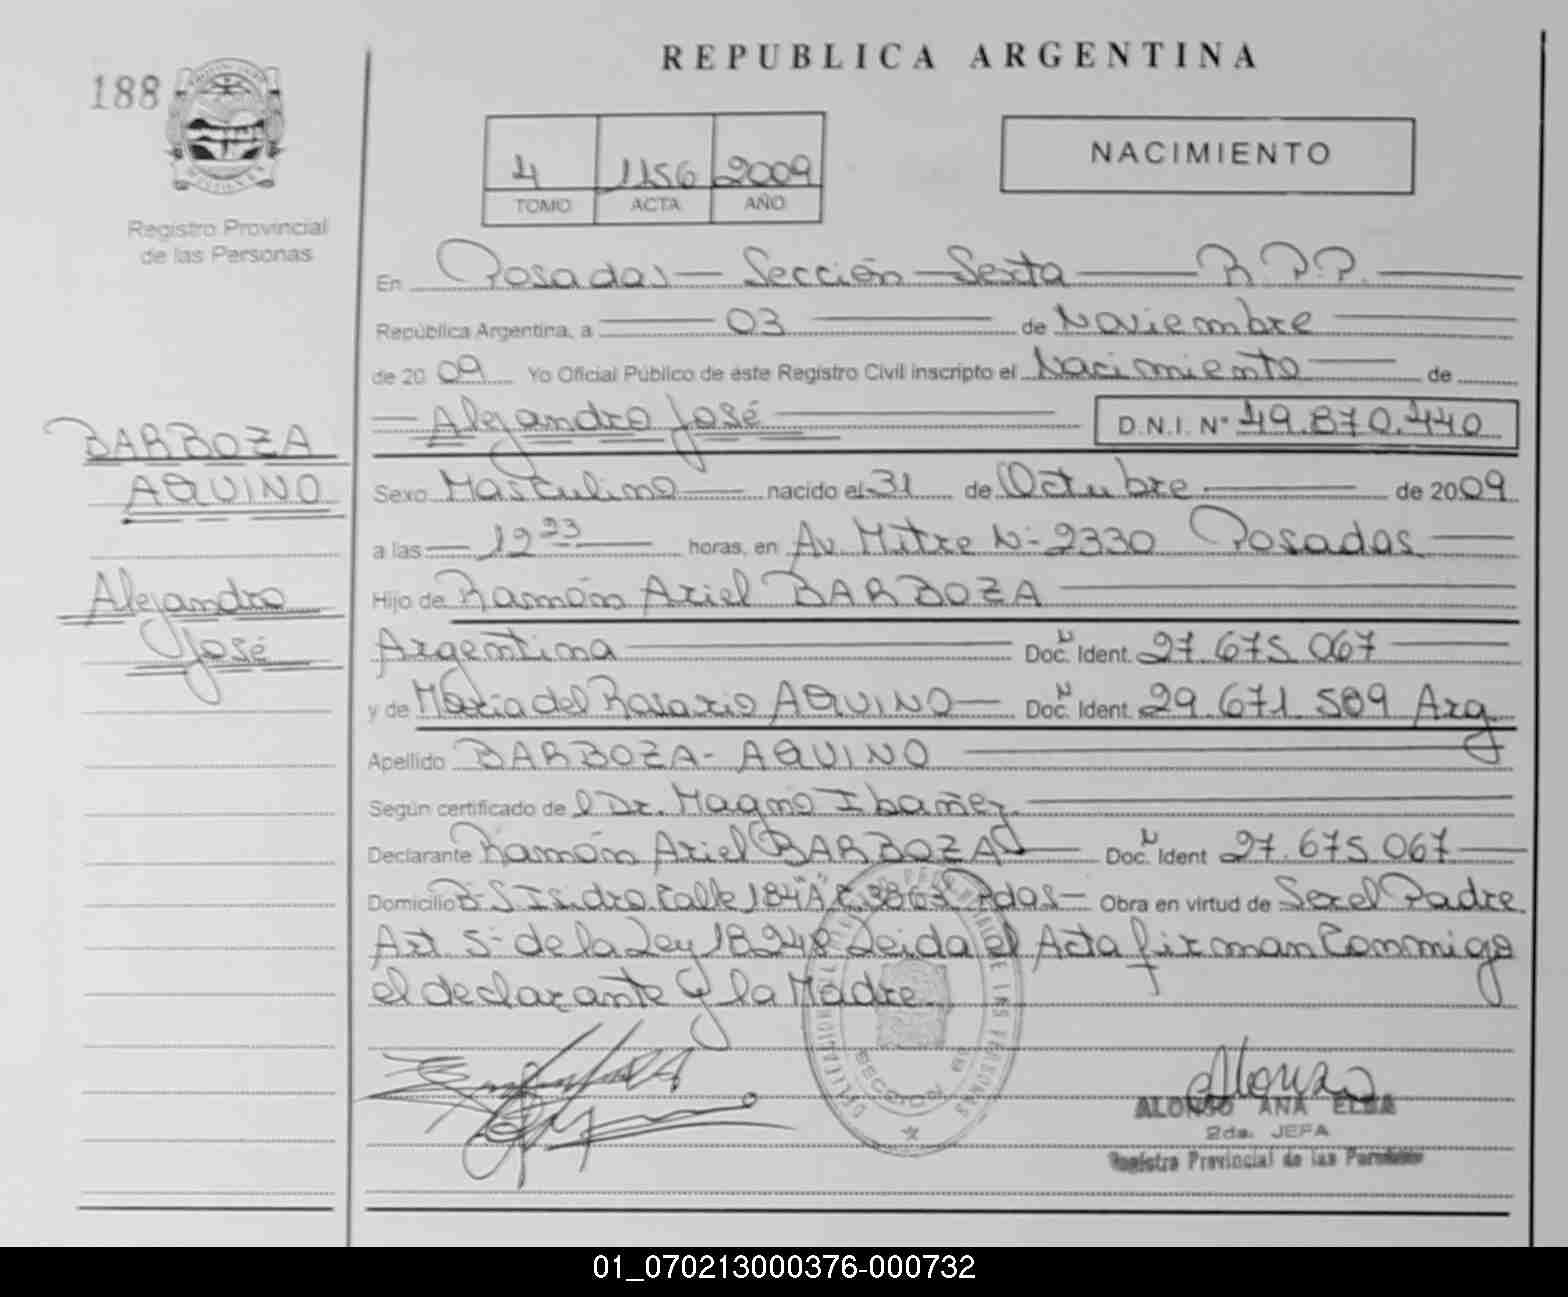 188
REPUBLICA ARGENTINA
4 1156 2009
TOMO ACTA AÑO
NACIMIENTO
Registro Provincial
de las Personas
En Posadas — Sección — Sexta — R.P.P.
República Argentina, a 03 de Noviembre
de 2009 Yo Oficial Público de éste Registro Civil inscripto el Nacimiento de
Alejandro José D.N.I. N° 49.870.440
BARBOZA
AQUINO
Alejandro
José
Sexo Masculino nacido el 31 de Octubre de 2009
a las 12 23 horas, en Av. Mitre N- 2330 Posadas
Hijo de Ramón Ariel BARBOZA
Argentina Doc. Ident. 27.675.067
y de María del Rosario AQUINO Doc. Ident. 29.671.509 Arg
Apellido BARBOZA - AQUINO
Según certificado de l Dr. Magno Ibañez
Declarante Ramón Ariel BARBOZA Doc. Ident 27.675.067
Domicilio B- S. Isidro Calle 184"A" C. 3863 Pdas - Obra en virtud de Ser el Padre
Art. 5- de la Ley 18.248 Leida el Acta firman Conmigo
el declarante y la Madre.
DE LAS PERSONAS
SECCION
Alonso
ALONSO ANA ELBA
2da. JEFA
Registro Provincial de las Personas
01_070213000376-000732